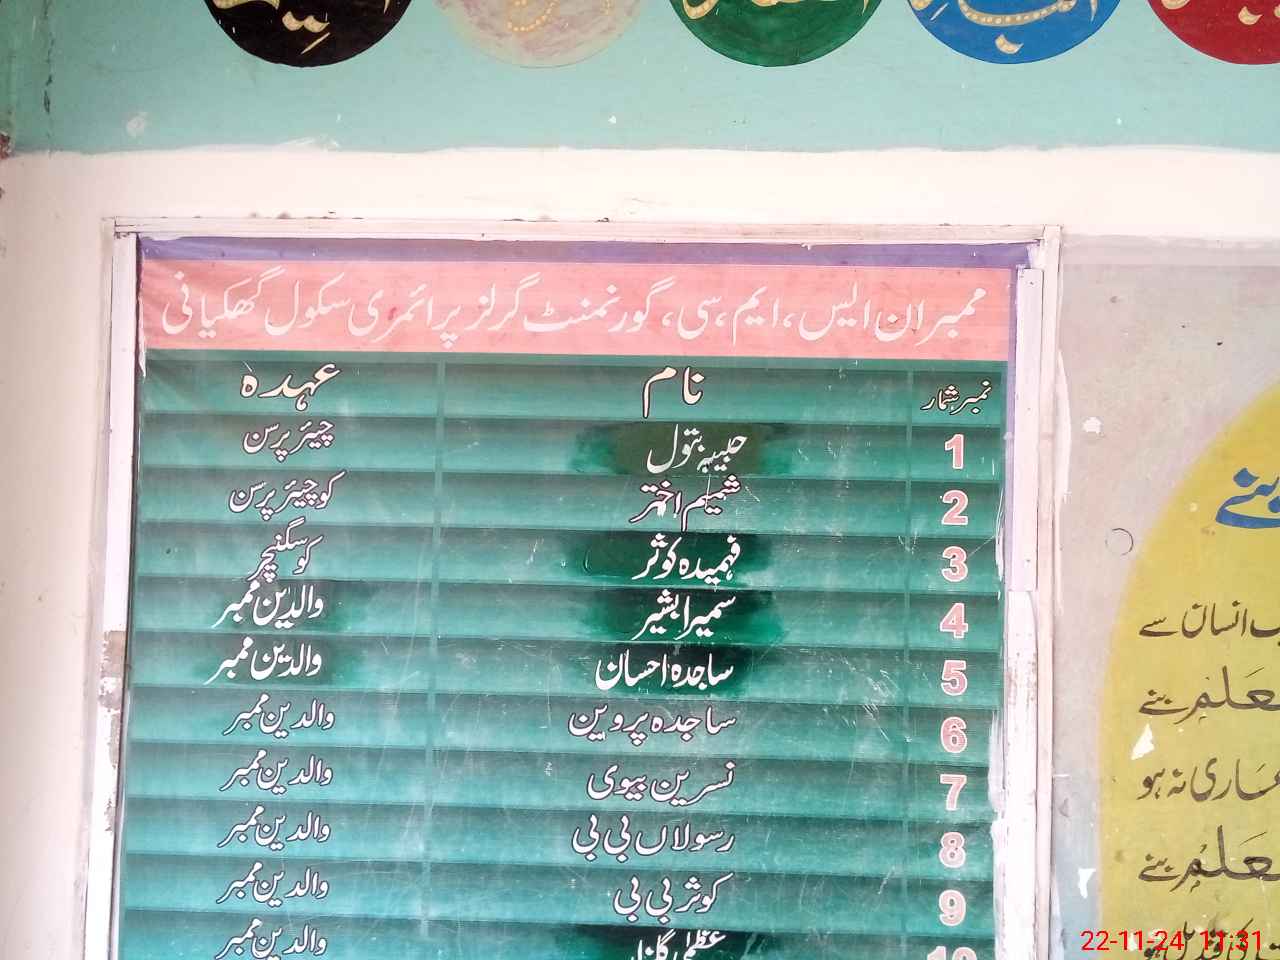 ممبران ایس، ایم، سی، گورنمنٹ گرلز پرائمری سکول گھکیانی
نمبر شمار نام عہدہ
1 حبیبہ بتول چیئر پرسن
2 شمیم اختر کو چیئر پرسن
3 فہمیدہ کوثر کو سگنیچر
4 سمیرا بشیر والدین ممبر
5 ساجدہ احسان والدین ممبر
6 ساجدہ پروین والدین ممبر
7 نسرین بیوی والدین ممبر
8 رسولاں بی بی والدین ممبر
9 کوثر بی بی والدین ممبر
10 عظمی گلزار والدین ممبر
بنے
انسان سے
بنے
عاری نہ ہو
بنے
22-11-24 11:31